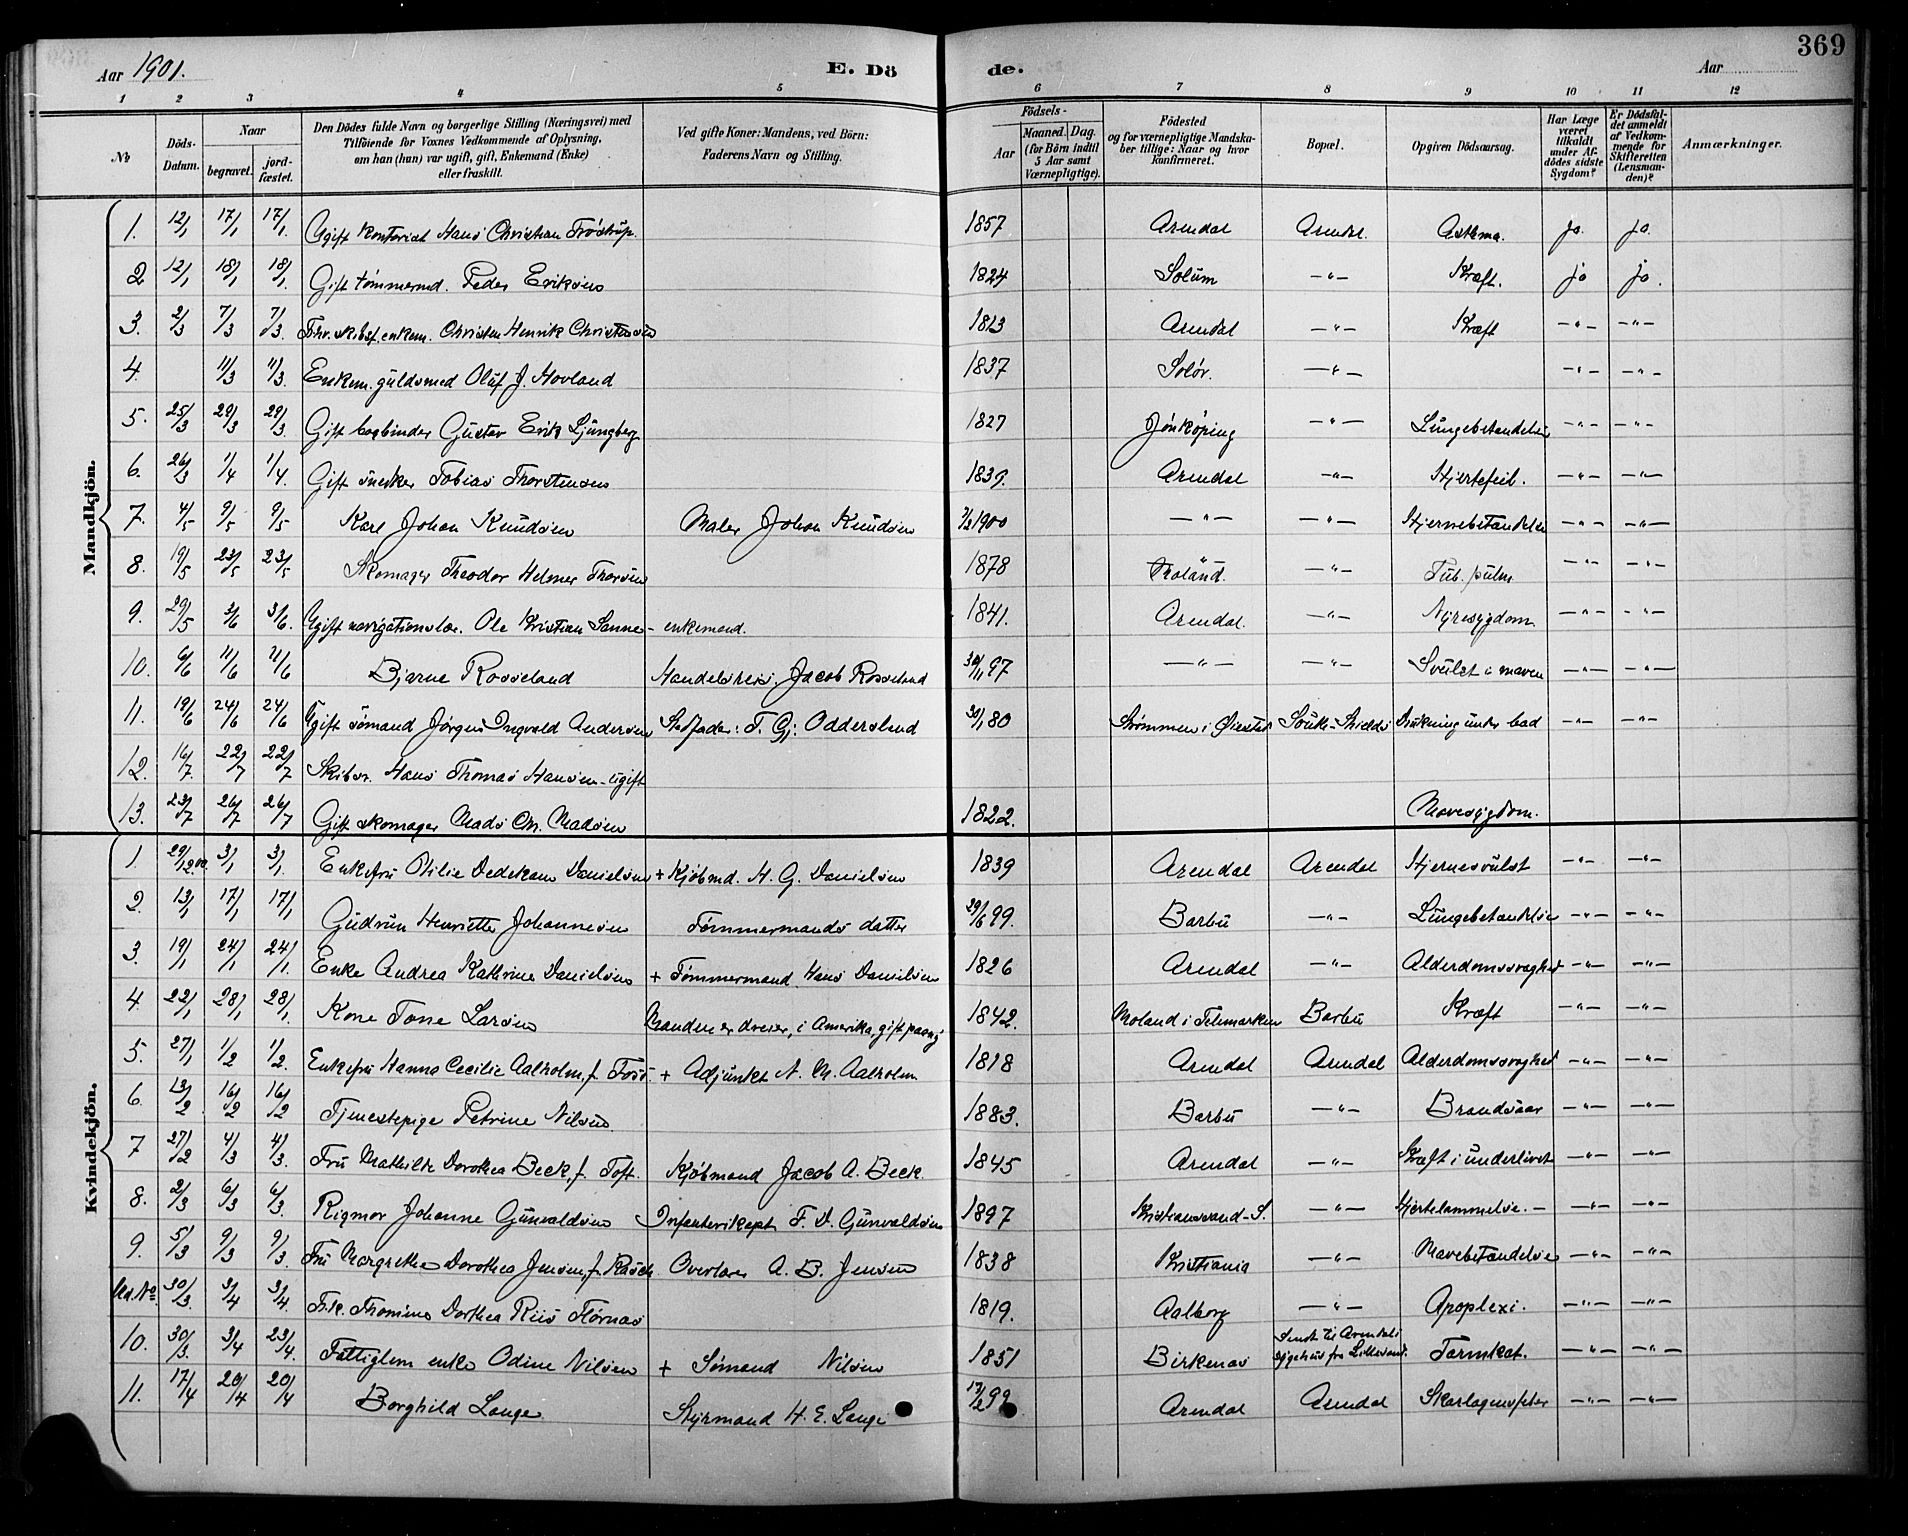 369
Aar 1901. E. Dö de. Aar
1 2 3 4 5 6 7 8 9 10 11 12
No
Döds-Datum.
Naar begravet. jordfæstet.
Den Dödes fulde Navn og borgerlige Stilling (Næringsvei) med Tilföiende for Voxnes Vedkommende af Oplysning, om han (hun) var ugift, gift, Enkemand (Enke) eller fraskilt.
Ved gifte Koner: Mandens, ved Börn: Faderens Navn og Stilling.
Födsels- Aar Maaned. Dag. (for Börn indtil 5 Aar samt Værnepligtige).
Födested og for værnepligtige Mandskaber tillige: Naar og hvor konfirmeret.
Bopæl.
Opgiven Dödsaarsag.
Har Læge været tilkaldt under Afdödes sidste Sygdom?
Er Dödsfaldet anmeldt af Vedkommende for Skifteretten (Lensmanden)?
Anmærkninger.
Mandkjön.
1. 12/1 17/1 17/1. Ugift kontorist Hans Christian Tröstrup. 1857 Arendal Arendal. Asthma. ja. ja.
2 12/1 18/1 18/1. Gift tømmermd. Peder Eriksen 1824 Solum —"— Kræft. ja ja.
3. 2/3 7/3 7/3. Fhv. skibsf. enkem. Christen Henrik Christensen 1813 Arendal —"— Kræft —"— —"—
4. 11/3 11/3. Enkem. guldsmed Oluf J. Hovland 1837 Solør. —"— —"— —"—
5. 25/3 29/3 29/3. Gift bogbinder Gustav Erik Ljungberg 1827 Jönköping —"— Lungebetændelse —"— —"—
6. 26/3 1/4 1/4. Gift snedker Tobias Thorstensen 1839. Arendal —"— Hjertefeil. —"— —"—
7. 4/5 9/5 9/5 Karl Johan Knudsen Maler Johan Knudsen 1900 —"— —"— Hjernebetændelse —"— —"—
8. 19/5 23/5 23/5 Skomager Theodor Helmer Thorsen 1878 —"— Tub. pulm. —"— —"—
9. 29/5 3/6 3/6. Ugift navigationslær. Ole Kristian Sanne – enkemand. 1841. Arendal. —"— Nyresygdom —"— —"—
10. 6/6 11/6 11/6 Bjarne Rosseland Handelsreis. Jacob Rosseland 30/11 97 —"— —"— Svulst i maven —"— —"—
11. 19/6 24/6 24/6 Ugift sömand Jörgen Ingvald Andersen Stedfader: T. Gj. Oddersland 30/1 80 Strømmen i Øiestad South-Shields Drukning under bad —"— —"—
12. 16/7. 22/7 22/7 Skibsr. Hans Thomas Hansen – ugift
13. 23/7 26/7 26/7 Gift skomager Mads Chr. Madsen 1822. Mavesygdom.
Kvindekjön.
1. 29/12 00. 3/1 3/1. Enkefru Otilie Dedekam Danielsen + Kjöbmd. H. G. Danielsen 1839 Arendal Arendal Hjernesvulst —"— —"—
2. 13/1 17/1 17/1 Gudrun Henriette Johannesen Tömmermands datter 29/6 99. Barbu —"— Lungebetændelse —"— —"—
3. 19/1 24/1 24/1. Enke Andrea Kathrine Danielsen + Tömmermand Hans Danielsen 1826 Arendal —"— Alderdomssvaghed —"— —"—
4. 22/1 28/1 28/1. Kone Tone Larsen Manden er dreier, i Amerika, gift paany 1842. Moland i Telemarken Barbu Kræft —"— —"—
5. 27/1 1/2 1/2. Enkefru Hanna Cecilie Aalholm, f. Foss. + Adjunkt N. M. Aalholm. 1818 Arendal Arendal Alderdomssvaghed —"— —"—
6. 13/2 16/2 16/2 Tjenestepige Petrine Nilsen. 1883. Barbu —"— Brandsaar —"— —"—
7 27/2 4/3 4/3. Fru Mathilde Dorothea Beck, f. Toft. Kjöbmand Jacob A. Beck. 1845 Arendal —"— Kræft i underlivet —"— —"—
8. 2/3 6/3 6/3. Rigmor Johanne Gunvaldsen Infanterikapt. T. D. Gunvaldsen 1897 Kristianssand-S. —"— Hjertelammelse. — —"— —"—
9. 5/3 9/3 9/3. Fru Margrethe Dorothea Jensen, f. Rasch. Overlærer A. B. Jensen 1838 Kristiania —"— Mavebetændelse —"— —"—
Ud. No. 30/3. 3/4 3/4. Frk. Thomine Dorthea Riis Flørnæs 1819. Aalborg —"— Apoplexi. —"— —"—
10. 30/3. 3/4 23/4. Fattiglem enke Odine Nilsen + Sömand Nilsen 1851 Birkenæs Sendt til Arendals sygehus fra Lillesand. Tarmkat. —"— —"—
11. 17/4 20/4 20/4 Borghild Lange Styrmand H. E. Lange 17/2 99 Arendal Arendal Skarlagensfeber —"— —"—